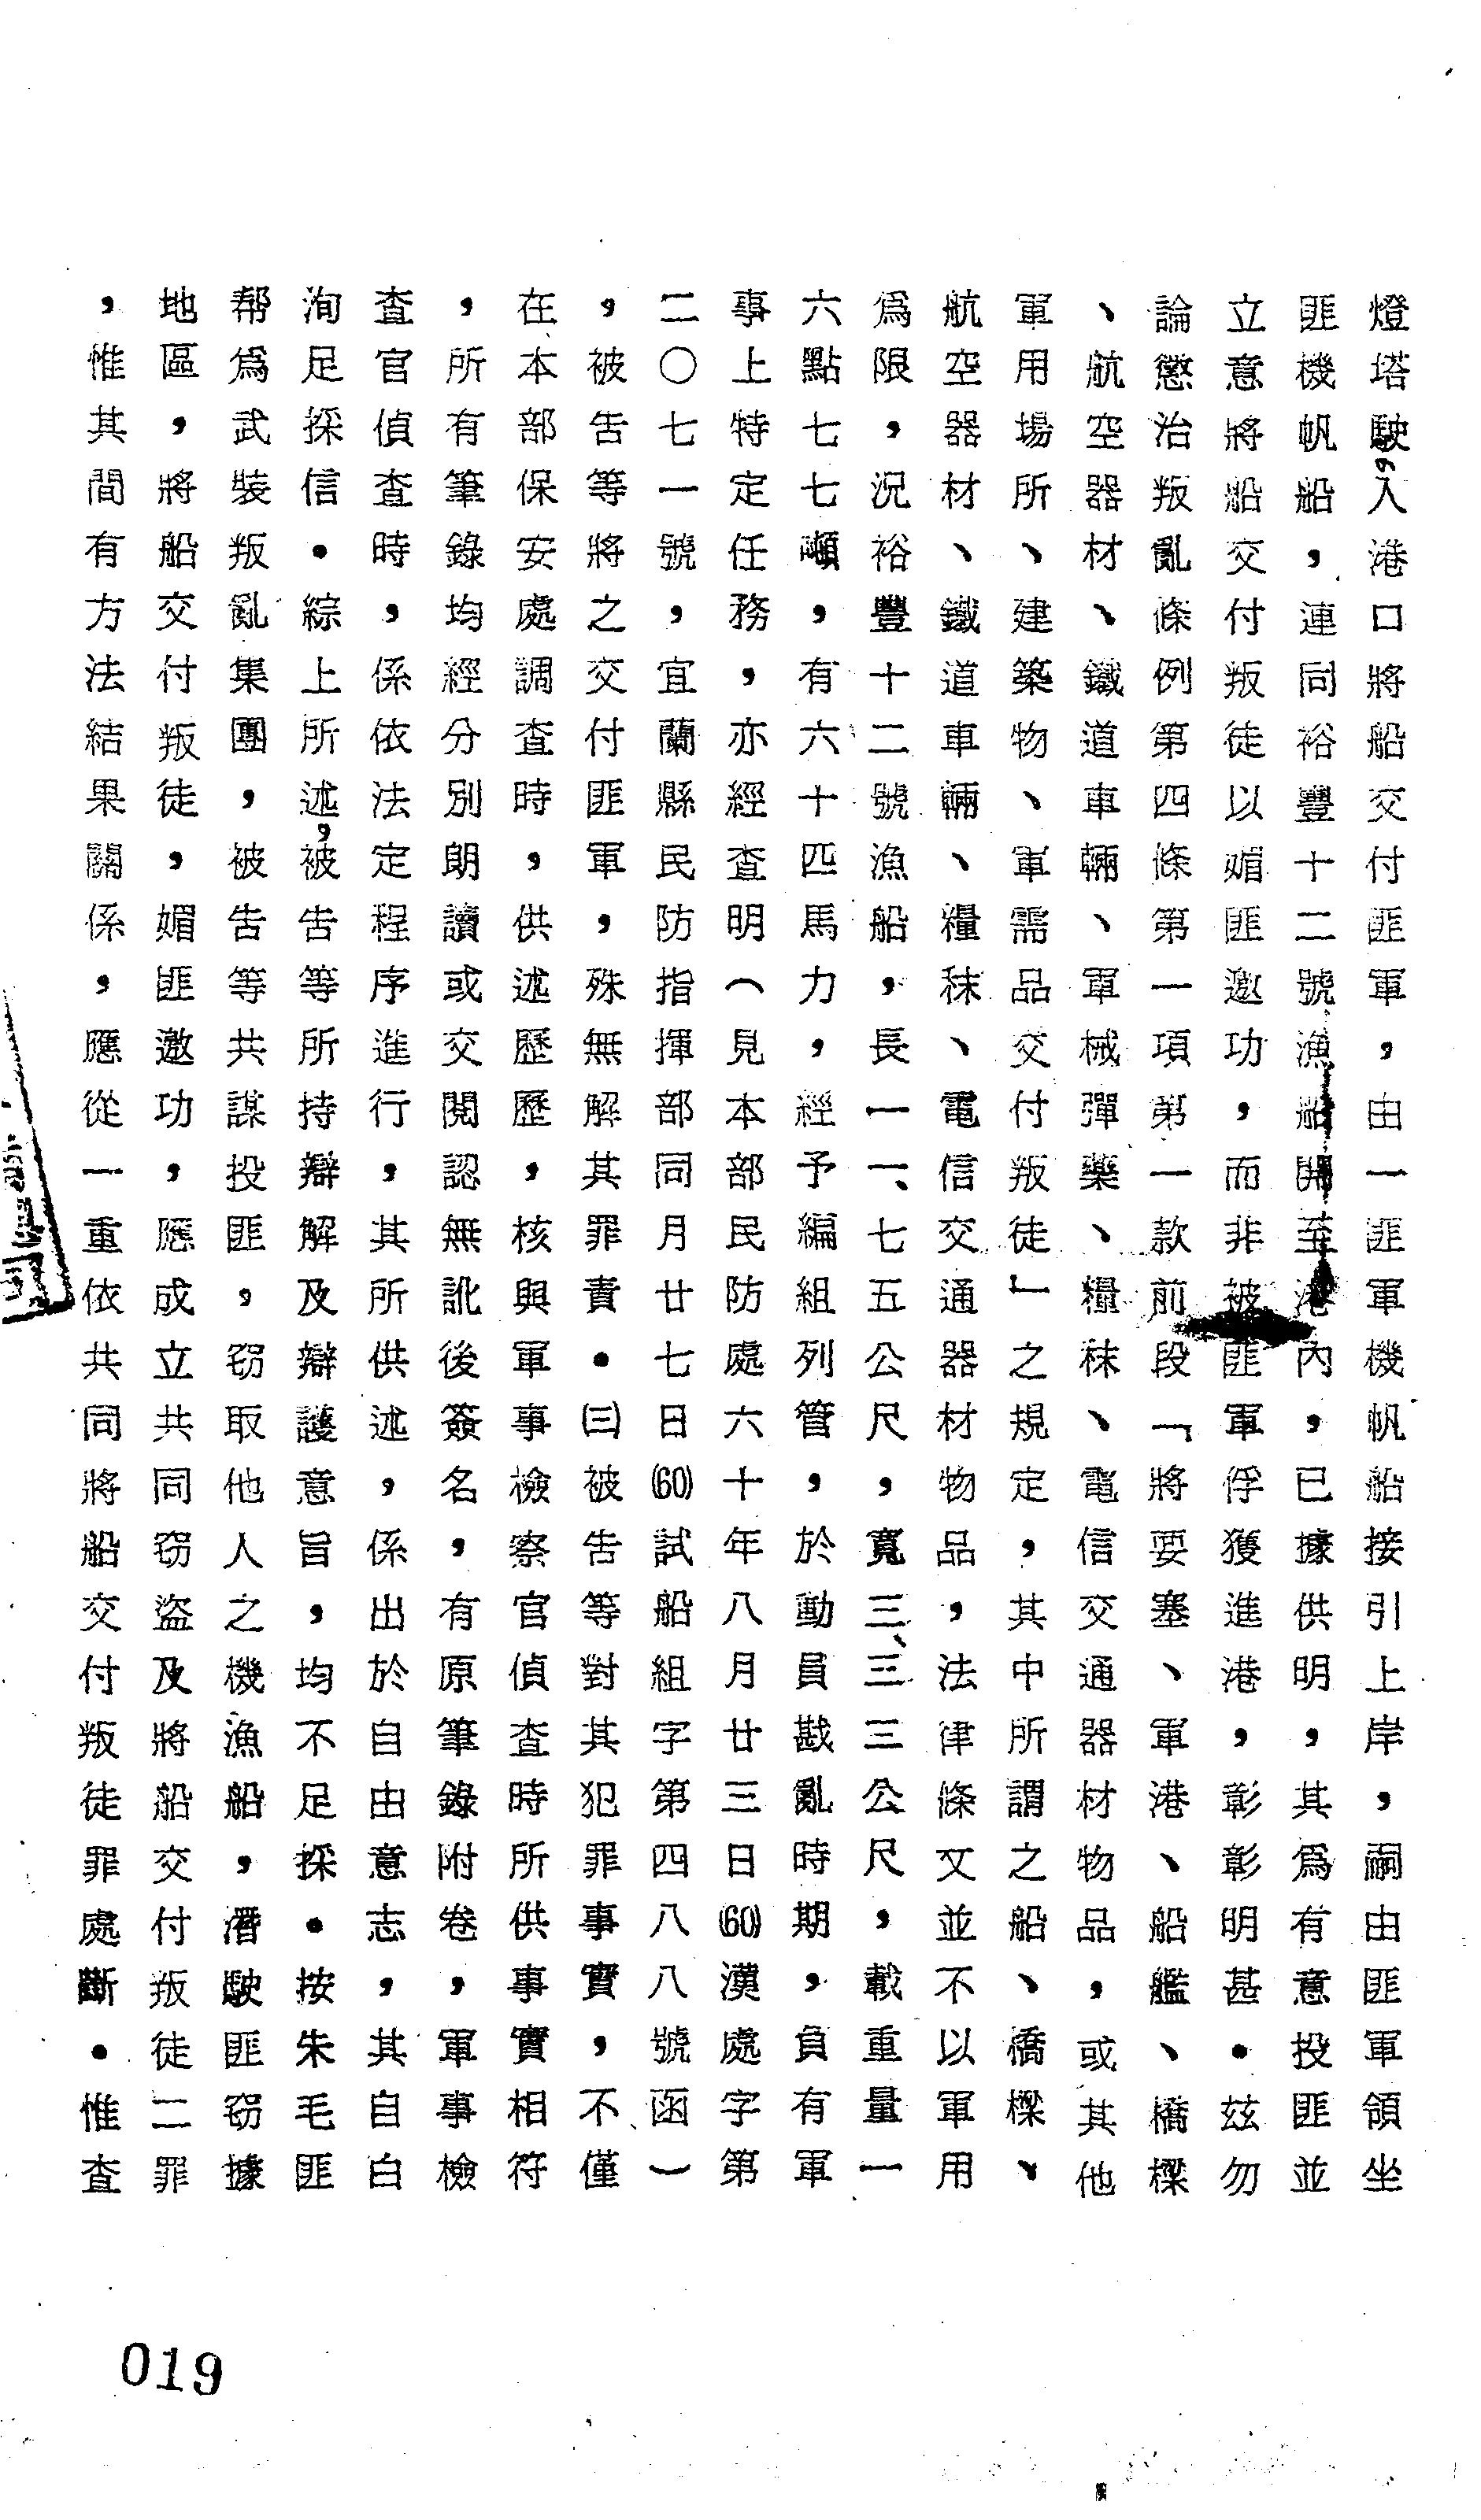 燈塔駛，入港口將船交付匪軍，由一匪軍機帆船接引上岸，嗣由匪軍領坐
匪機帆船，連同裕豐十二號漁船開至港內，已據供明，其爲有意投匪並
立意將船交付叛徒以媚匪邀功，而非被匪軍俘獲進港，彰彰明甚．茲勿
論懲治叛亂條例第四條第一項第一款前段「將要塞、軍港、船艦、橋樑
、航空器材、鐵道車輛、軍械彈藥、糧秣、電信交通器材物品，或其他
軍用場所、建築物、軍需品交付叛徒」之規定，其中所謂之船、橋樑、
航空器材、鐵道車輛、糧秣、電信交通器材物品，法律條文並不以軍用
爲限，況裕豐十二號漁船，長一一、七五公尺，寬三、三三公尺，載重量一
六點七七噸，有六十匹馬力，經予編組列管，於動員戡亂時期，負有軍
事上特定任務，亦經查明（見本部民防處六十年八月廿三日(60)漢處字第
二〇七一號，宜蘭縣民防指揮部同月廿七日(60)試船組字第四八八號函）
，被告等將之交付匪軍，殊無解其罪責．㈢被告等對其犯罪事實，不僅
在本部保安處調查時，供述歷歷，核與軍事檢察官偵查時所供事實相符
，所有筆錄均經分別朗讀或交閱認無訛後簽名，有原筆錄附卷，軍事檢
查官偵查時，係依法定程序進行，其所供述，係出於自由意志，其自白
洵足採信．綜上所述，被告等所持辯解及辯護意旨，均不足採．按朱毛匪
帮爲武裝叛亂集團，被告等共謀投匪，窃取他人之機漁船，潛駛匪窃據
地區，將船交付叛徒，媚匪邀功，應成立共同窃盜及將船交付叛徒二罪
，惟其間有方法結果關係，應從一重依共同將船交付叛徒罪處斷．惟查
019